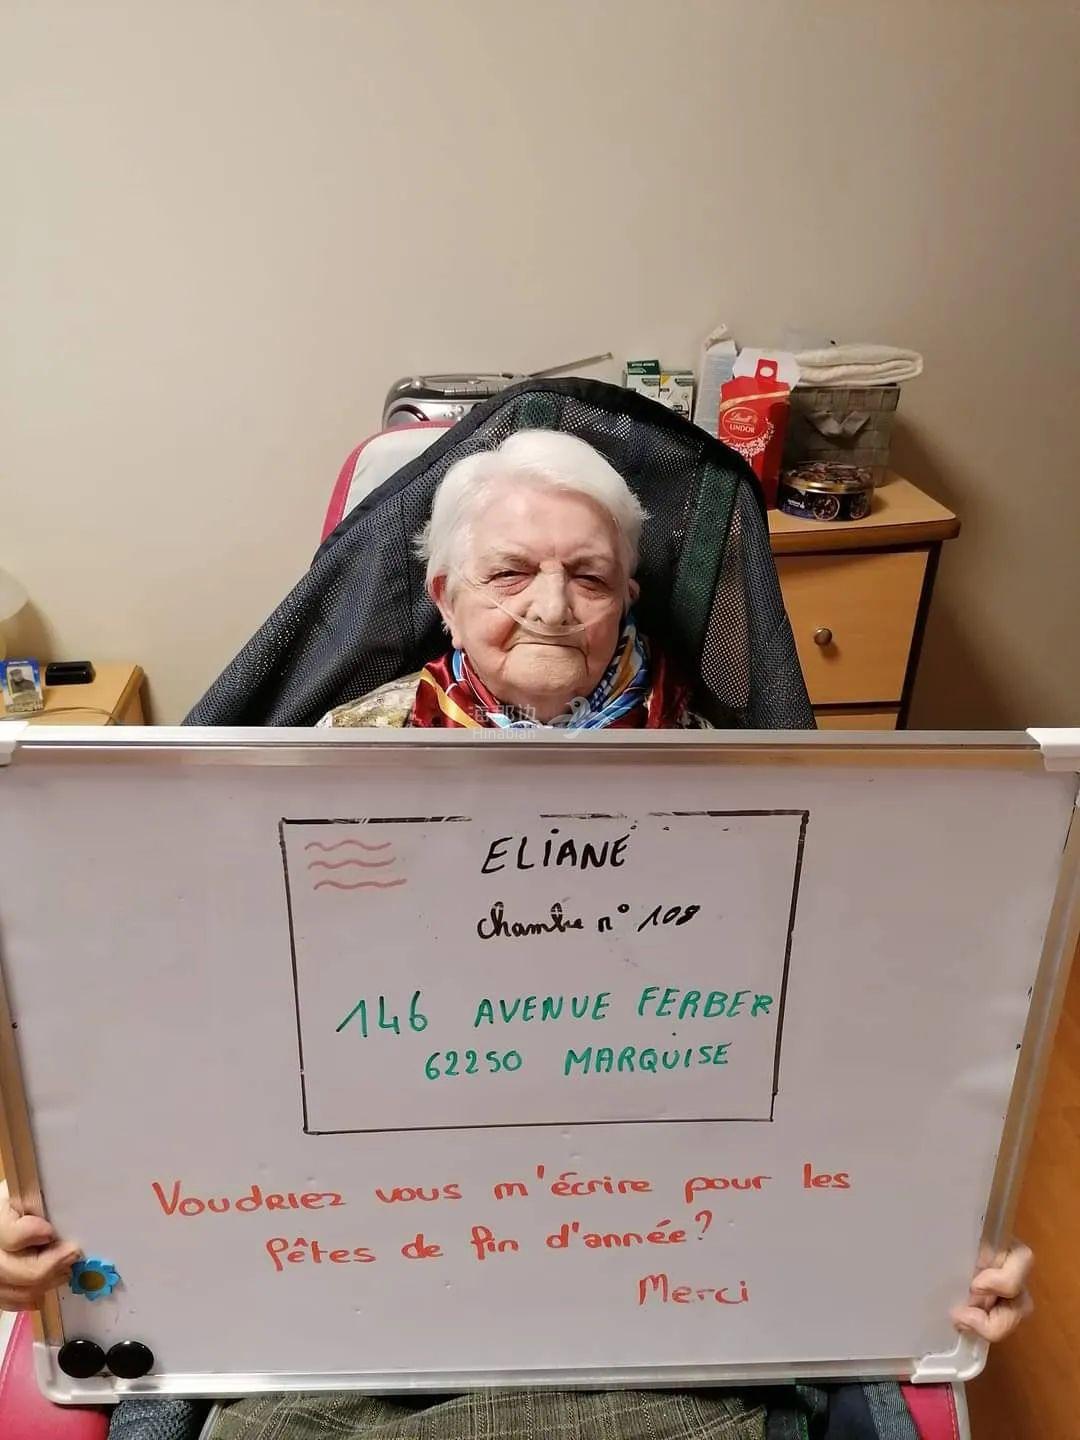 Lindt
LINDOR
海那边
Hinabian
ELIANE
Chambre n° 108
146 AVENUE FERBER
62250 MARQUISE
Voudriez vous m'écrire pour les
fêtes de fin d'année?
Merci